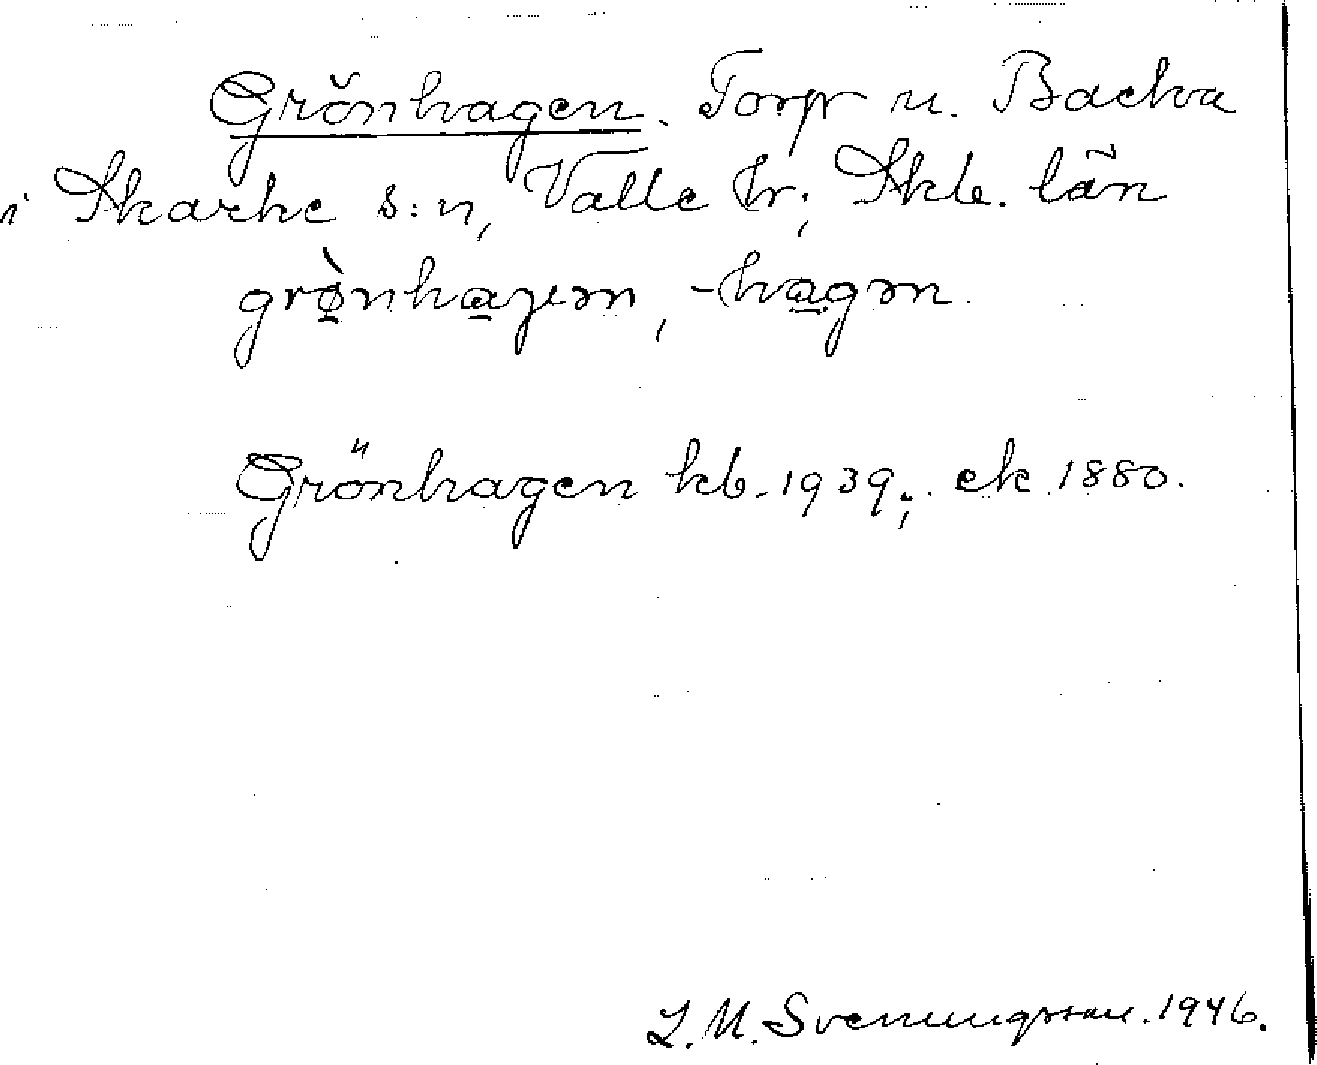 Grönhagen. Torp u. Backa
i Skarke s:n, Valle hr; Skb. län
grø̀nhaɡ̶ən, -hagən.
Grönhagen kb. 1939; ek 1880.
L. M. Svenungsson. 1946.